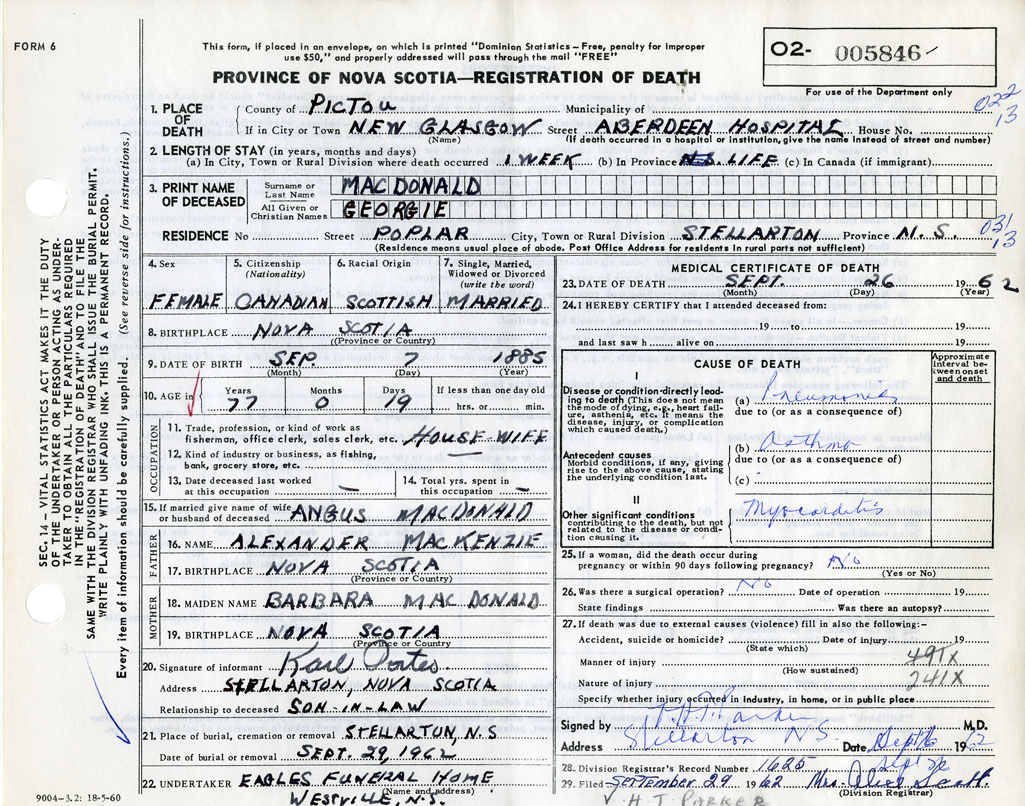 FORM 6
This form, if placed in an envelope, on which is printed "Dominion Statistics – Free, penalty for improper
use $50," and properly addressed will pass through the mail "FREE"
PROVINCE OF NOVA SCOTIA—REGISTRATION OF DEATH
O2- 005846
For use of the Department only
022
13
1. PLACE OF DEATH
County of PICTOU Municipality of
If in City or Town NEW GLASGOW Street ABERDEEN HOSPITAL House No.
(Name) (If death occurred in a hospital or institution, give the name instead of street and number)
2. LENGTH OF STAY (in years, months and days)
(a) In City, Town or Rural Division where death occurred 1 WEEK (b) In Province N.S. LIFE (c) In Canada (if immigrant)
3. PRINT NAME OF DECEASED
Surname or Last Name MAC DONALD
All Given or Christian Names GEORGIE
RESIDENCE No Street POPLAR City, Town or Rural Division STELLARTON Province N.S.
031
13
(Residence means usual place of abode. Post Office Address for residents in rural parts not sufficient)
4. Sex 5. Citizenship (Nationality) 6. Racial Origin 7. Single, Married, Widowed or Divorced (write the word)
FEMALE CANADIAN SCOTTISH MARRIED
8. BIRTHPLACE NOVA SCOTIA
(Province or Country)
9. DATE OF BIRTH SEP. 7 1885
(Month) (Day) (Year)
10. AGE in Years Months Days If less than one day old
77 0 19 hrs. or min.
OCCUPATION
11. Trade, profession, or kind of work as
fisherman, office clerk, sales clerk, etc. HOUSE WIFE
12. Kind of industry or business, as fishing,
bank, grocery store, etc. —
13. Date deceased last worked at this occupation —
14. Total yrs. spent in this occupation —
15. If married give name of wife
or husband of deceased ANGUS MACDONALD
FATHER
16. NAME ALEXANDER MACKENZIE
17. BIRTHPLACE NOVA SCOTIA
(Province or Country)
MOTHER
18. MAIDEN NAME BARBARA MAC DONALD
19. BIRTHPLACE NOVA SCOTIA
(Province or Country)
20. Signature of informant Karl
Address STELLARTON, NOVA SCOTIA
Relationship to deceased SON-IN-LAW
21. Place of burial, cremation or removal STELLARTON, N.S
Date of burial or removal SEPT. 29, 1962
22. UNDERTAKER EAGLES FUNERAL HOME
(Name and address)
WESTVILLE, N.S.
MEDICAL CERTIFICATE OF DEATH
23. DATE OF DEATH SEPT. 26 1962
(Month) (Day) (Year)
24. I HEREBY CERTIFY that I attended deceased from:
19 to 19
and last saw h alive on 19
CAUSE OF DEATH
Approximate interval between onset and death
I
Disease or condition directly leading to death (This does not mean the mode of dying, e.g., heart failure, asthenia, etc. It means the disease, injury, or complication which caused death.)
(a) Pneumonia
due to (or as a consequence of)
Antecedent causes
Morbid conditions, if any, giving rise to the above cause, stating the underlying condition last.
(b) asthma
due to (or as a consequence of)
(c)
II
Other significant conditions
contributing to the death, but not related to the disease or condition causing it.
Myocarditis
25. If a woman, did the death occur during
pregnancy or within 90 days following pregnancy? No
(Yes or No)
26. Was there a surgical operation? No Date of operation 19
State findings Was there an autopsy?
27. If death was due to external causes (violence) fill in also the following:-
Accident, suicide or homicide? Date of injury 19
(State which)
Manner of injury 491X
(How sustained)
Nature of injury 241X
Specify whether injury occurred in industry, in home, or in public place
Signed by Parker M.D.
Address Stellarton N.S. Date Sept 1962
28. Division Registrar's Record Number 1625
29. Filed September 29 1962 Mrs
(Division Registrar)
H.T. PARKER
SEC. 14 – VITAL STATISTICS ACT MAKES IT THE DUTY
OF THE UNDERTAKER OR PERSON ACTING AS UNDER-
TAKER TO OBTAIN ALL THE PARTICULARS REQUIRED
IN THE "REGISTRATION OF DEATH" AND TO FILE THE
SAME WITH THE DIVISION REGISTRAR WHO SHALL ISSUE THE BURIAL PERMIT.
WRITE PLAINLY WITH UNFADING INK. THIS IS A PERMANENT RECORD.
Every item of information should be carefully supplied. (See reverse side for instructions.)
9004-3.2: 18-5-60